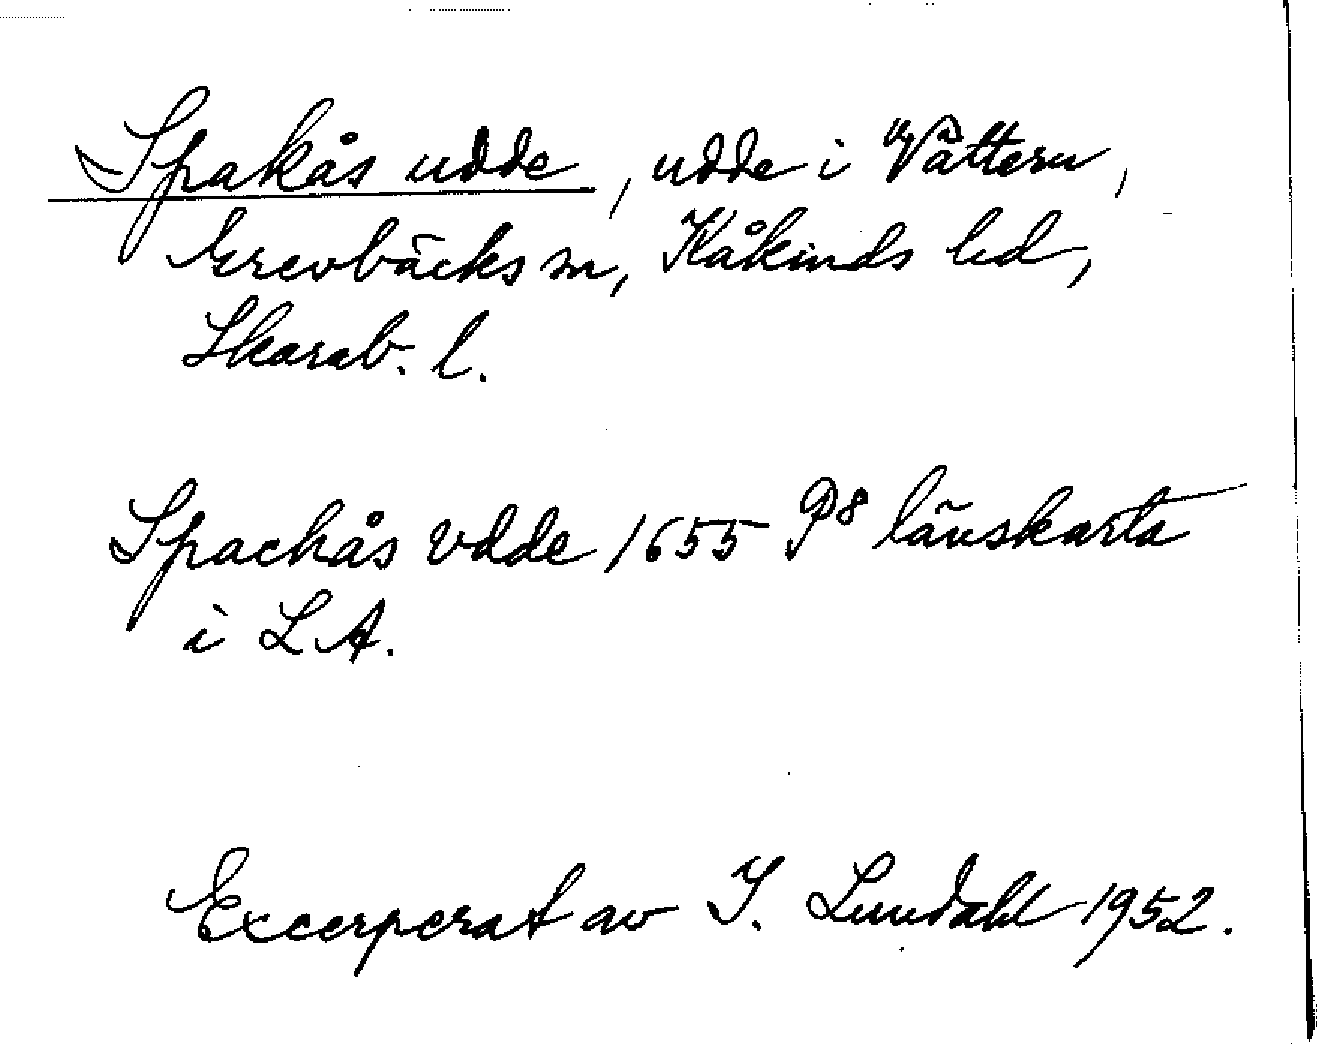 Spakås udde, udde i Vättern,
Grevbäcks sn, Kåkinds hd,
Skarab. l.
Spackås vdde 1655 P8 länskarta
i LA.
Excerperat av I. Lundahl 1952.